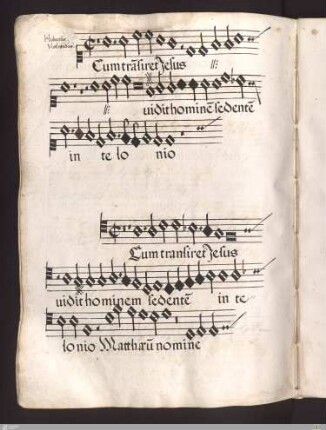 Cum trāsiret Jesus
uidit hominē sedentē
in te lo nio
Cum transiret Jesus
uidit hominem sedentē in te
lo nio Matthæū nomine